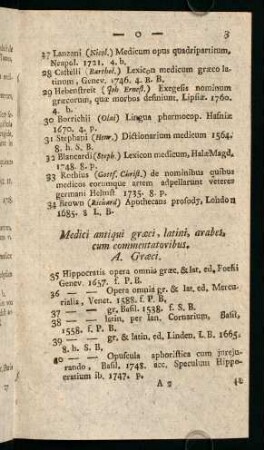 — o — 3
27 Lanzani (Nicol.) Medicum opus quadripartitum,
Neapol. 1721. 4. b,
28 Castelli (Barthol.) Lexicon medicum græco la-
tinom, Genev. 1746. 4. B. B.
29 Hebenstreit (Joh. Ernest.) Exegesis nominum
græcorum, quæ morbos definiunt, Lipsiæ. 1760.
4. b.
30 Borrichii (Olai) Lingua pharmacop. Hafniæ
1670. 4. p.
31 Stephani (Henr.) Dictionarium medicum 1564.
8. h. S. B.
32 Blancardi (Steph.) Lexicon medicum, Halæ Magd,
1748. 8. p.
33 (Gottf. Christ.) de nominibus quibus
medicos eorumque artem adpellarunt veteres
germani Helmst. 1735. 8. p.
34 Brown (Richard) Apothecaus prosody, London
1685. 8 L. B.
Medici antiqui græci, latini, arabes,
cum commentatoribus.
A. Græci.
35 Hippocratis opera omnia græ. & lat. ed, Foesii
Genev. 1657. f. P. B,
36 — — Opera omnis gr. & lat, ed, Mercu-
rialia, Venet. 1588. f. P. B,
37 — — gr, Basil. 1538. f. S. B.
38 — — latin, per Ian. Cornarium, Basil,
1558. f. P. B.
39 — — gr. & latin, ed, Linden. L. B. 1665.
8. h. S. B,
40 — — Opuscula aphoristica cum jureju-
rando, Basil, 1748. acc. Speculum Hippo-
cratium ib. 1747. p.
A 2